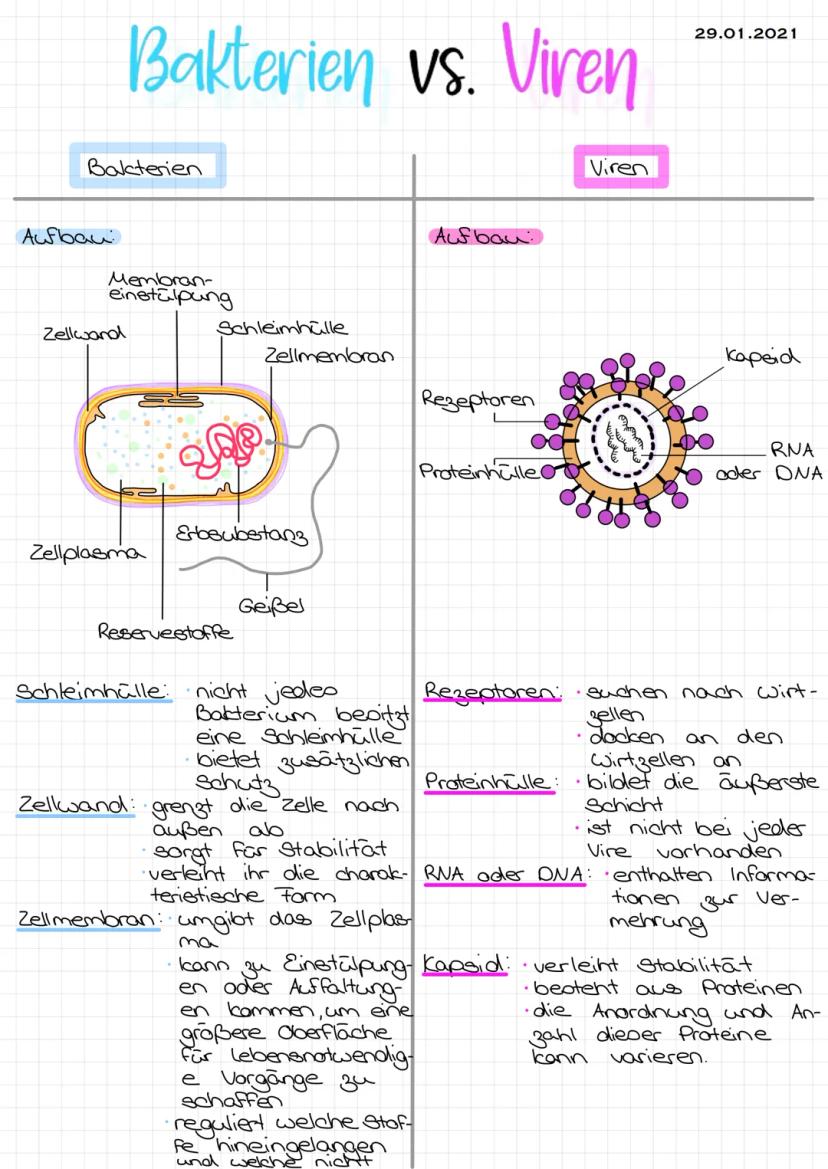 29.01.2021
Bakterien vs. Viren
Bakterien
Viren
Aufbau:
Membran-
einstülpung
Zellwand
Schleimhülle
Zellmembran
Zellplasma
Erbsubstanz
Geißel
Reservestoffe
Aufbau:
Kapsid
Rezeptoren
RNA
oder DNA
Proteinhülle
Schleimhülle: · nicht jedes
Bakterium besitzt
eine Schleimhülle
· bietet zusätzlichen
Schutz
Zellwand: · grenzt die Zelle nach
außen ab
· sorgt für Stabilität
· verleiht ihr die charak-
teristische Form
Zellmembran: · umgibt das Zellplas-
ma
· kann zu Einstülpung-
en oder Auffaltung-
en kommen, um eine
größere Oberfläche
für lebensnotwendig-
e Vorgänge zu
schaffen
· reguliert welche Stof-
fe hineingelangen
und welche nicht
Rezeptoren: · suchen nach Wirt-
zellen
· docken an den
Wirtzellen an
Proteinhülle: · bildet die äußerste
Schicht
· ist nicht bei jeder
Vire vorhanden
RNA oder DNA: · enthalten Informa-
tionen zur Ver-
mehrung
Kapsid: · verleiht Stabilität
· besteht aus Proteinen
· die Anordnung und An-
zahl dieser Proteine
kann varieren.